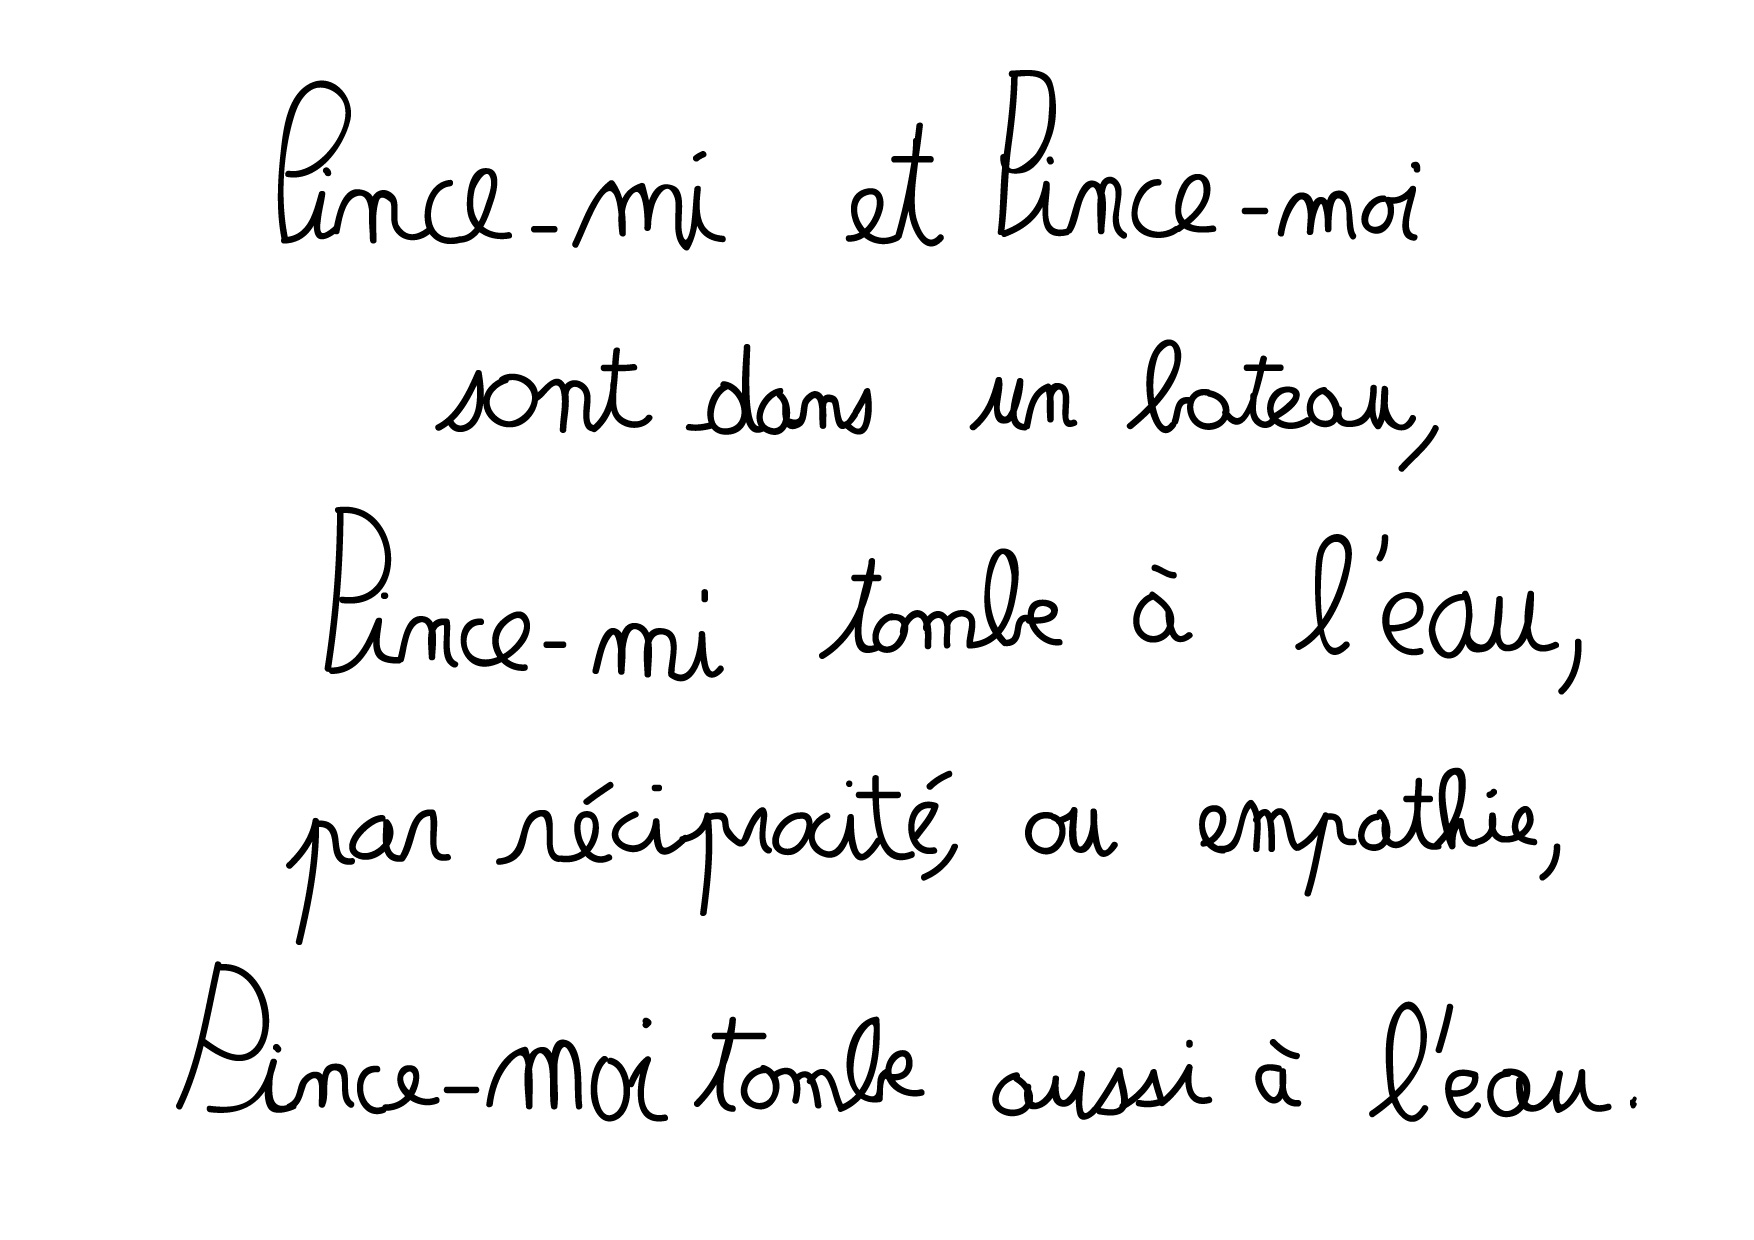 Pince-mi et Pince-moi
sont dans un bateau,
Pince-mi tombe à l'eau,
par réciprocité, ou empathie,
Pince-moi tombe aussi à l'eau.